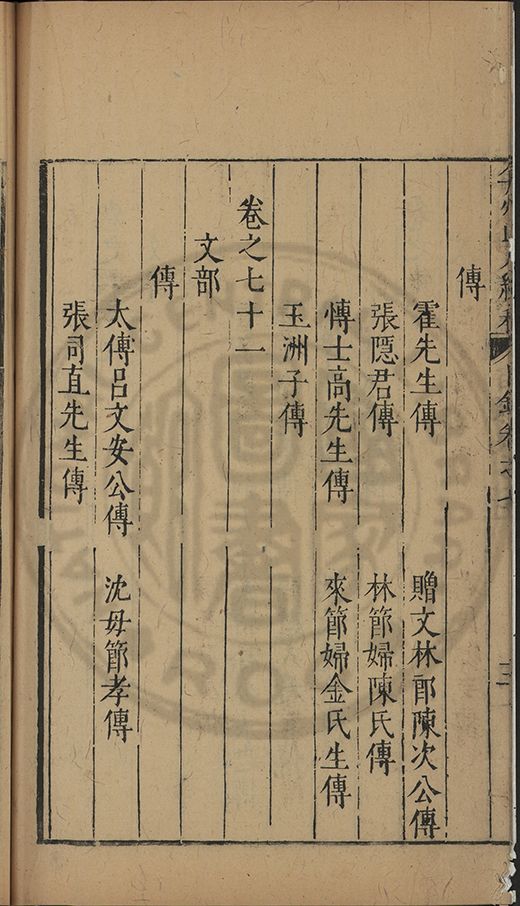 傳
霍先生傳 贈文林郎陳次公傳
張隱君傳 林節婦陳氏傳
博士高先生傳 來節婦金氏生傳
玉洲子傳
卷之七十一
文部
傳
太傅呂文安公傳 沈母節孝傳
張司直先生傳